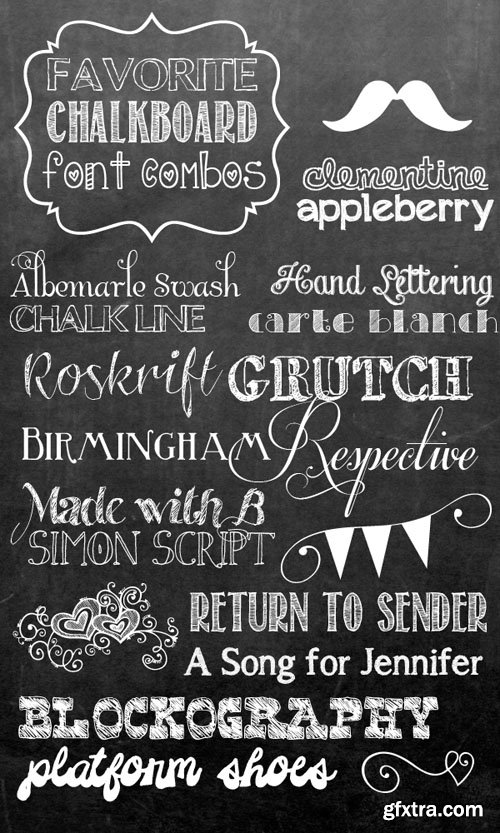 FAVORITE
CHALKBOARD
font combos
clementine
appleberry
Albemarle Swash
CHALK LINE
Hand Lettering
carte blanch
Roskrift GRUTCH
BIRMINGHAM Respective
Made with B
SIMON SCRIPT
RETURN TO SENDER
A Song for Jennifer
BLOCKOGRAPHY
platform shoes
gfxtra.com